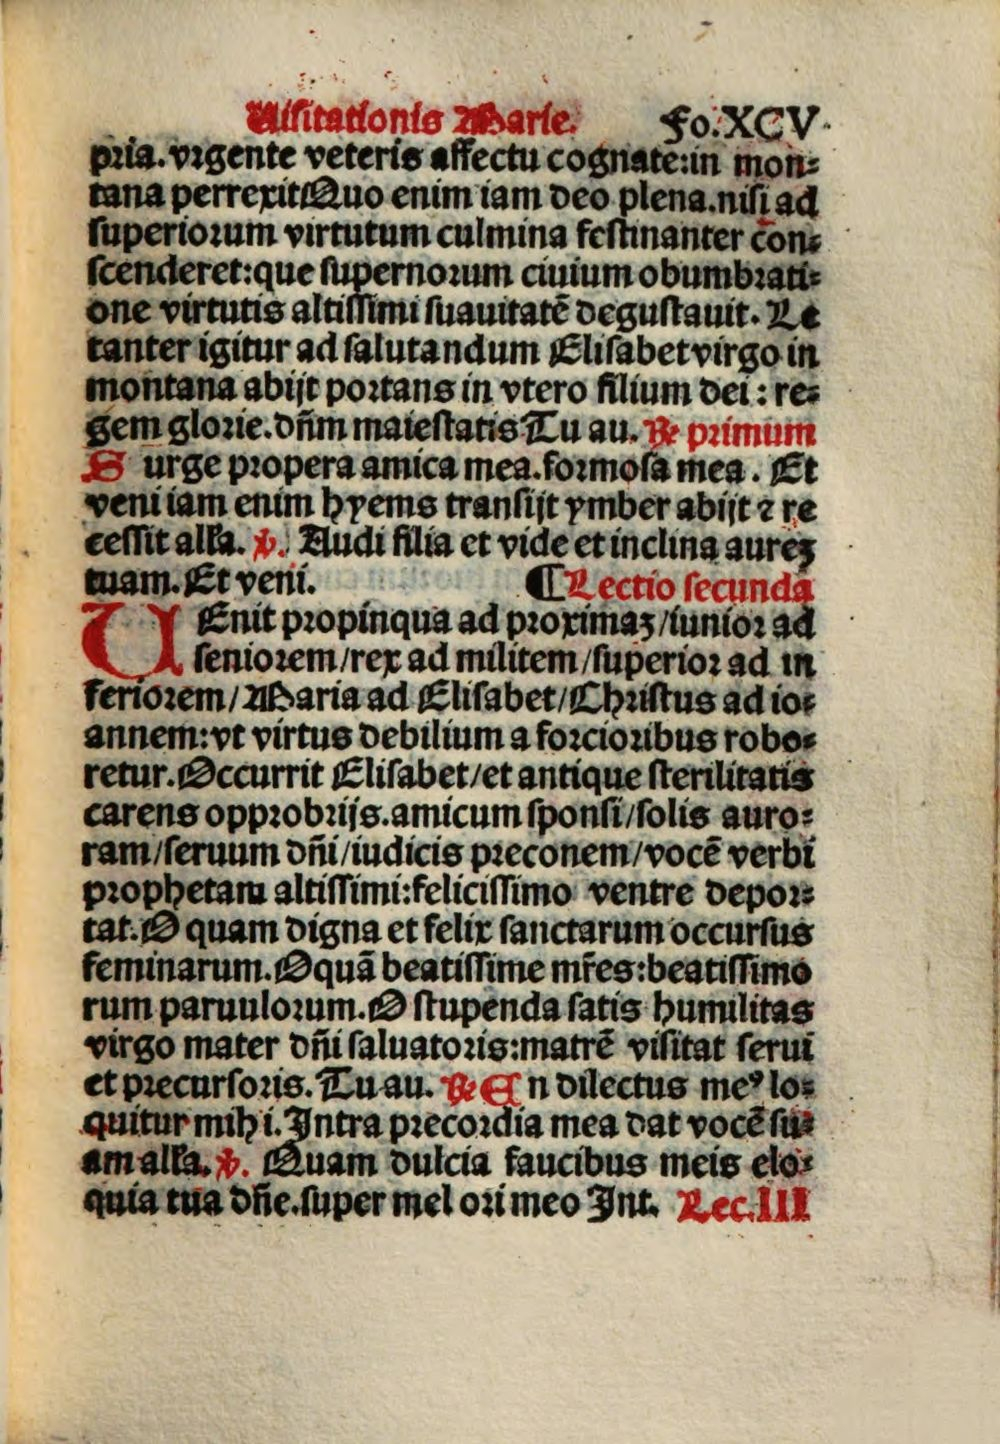 Uisitationis Marie. Fo. XCV.
pria. vrgente veteris affectu cognate: in mon⸗
tana perrexit Quo enim iam deo plena. nisi ad
superiorum virtutum culmina festinanter con⸗
scenderet: que supernorum ciuium obumbrati⸗
one virtutis altissimi suauitatē degustauit. Le
tanter igitur ad salutandum Elisabet virgo in
montana abijt portans in vtero filium dei: re⸗
gem glorie. dñm maiestatis Tu au. ℟ primum
Surge propera amica mea. formosa mea. Et
veni iam enim hyems transijt ymber abijt ⁊ re
cessit alľa. ℣. Audi filia et vide et inclina aureꝫ
tuam. Et veni. ¶ Lectio secunda
UEnit propinqua ad proximaꝫ / iunior ad
seniorem / rex ad militem / superior ad in
feriorem / Maria ad Elisabet / Christus ad io⸗
annem: vt virtus debilium a forcioribus robo⸗
retur. Occurrit Elisabet / et antique sterilitatis
carens opprobrijs. amicum sponsi / solis auro⸗
ram / seruum dñi / iudicis preconem / vocē verbi
prophetam altissimi: felicissimo ventre depor⸗
tat. O quam digna et felix sanctarum occursus
feminarum. O quā beatissime mr̄es: beatissimo
rum paruulorum. O stupenda satis humilitas
virgo mater dñi saluatoris: matrē visitat serui
et precursoris. Tu au. ℟ En dilectus meꝰ lo⸗
quitur mihi. Intra precordia mea dat vocē su⸗
am alľa. ℣. Quam dulcia faucibus meis elo⸗
quia tua dñe. super mel ori meo Int. Lec. III